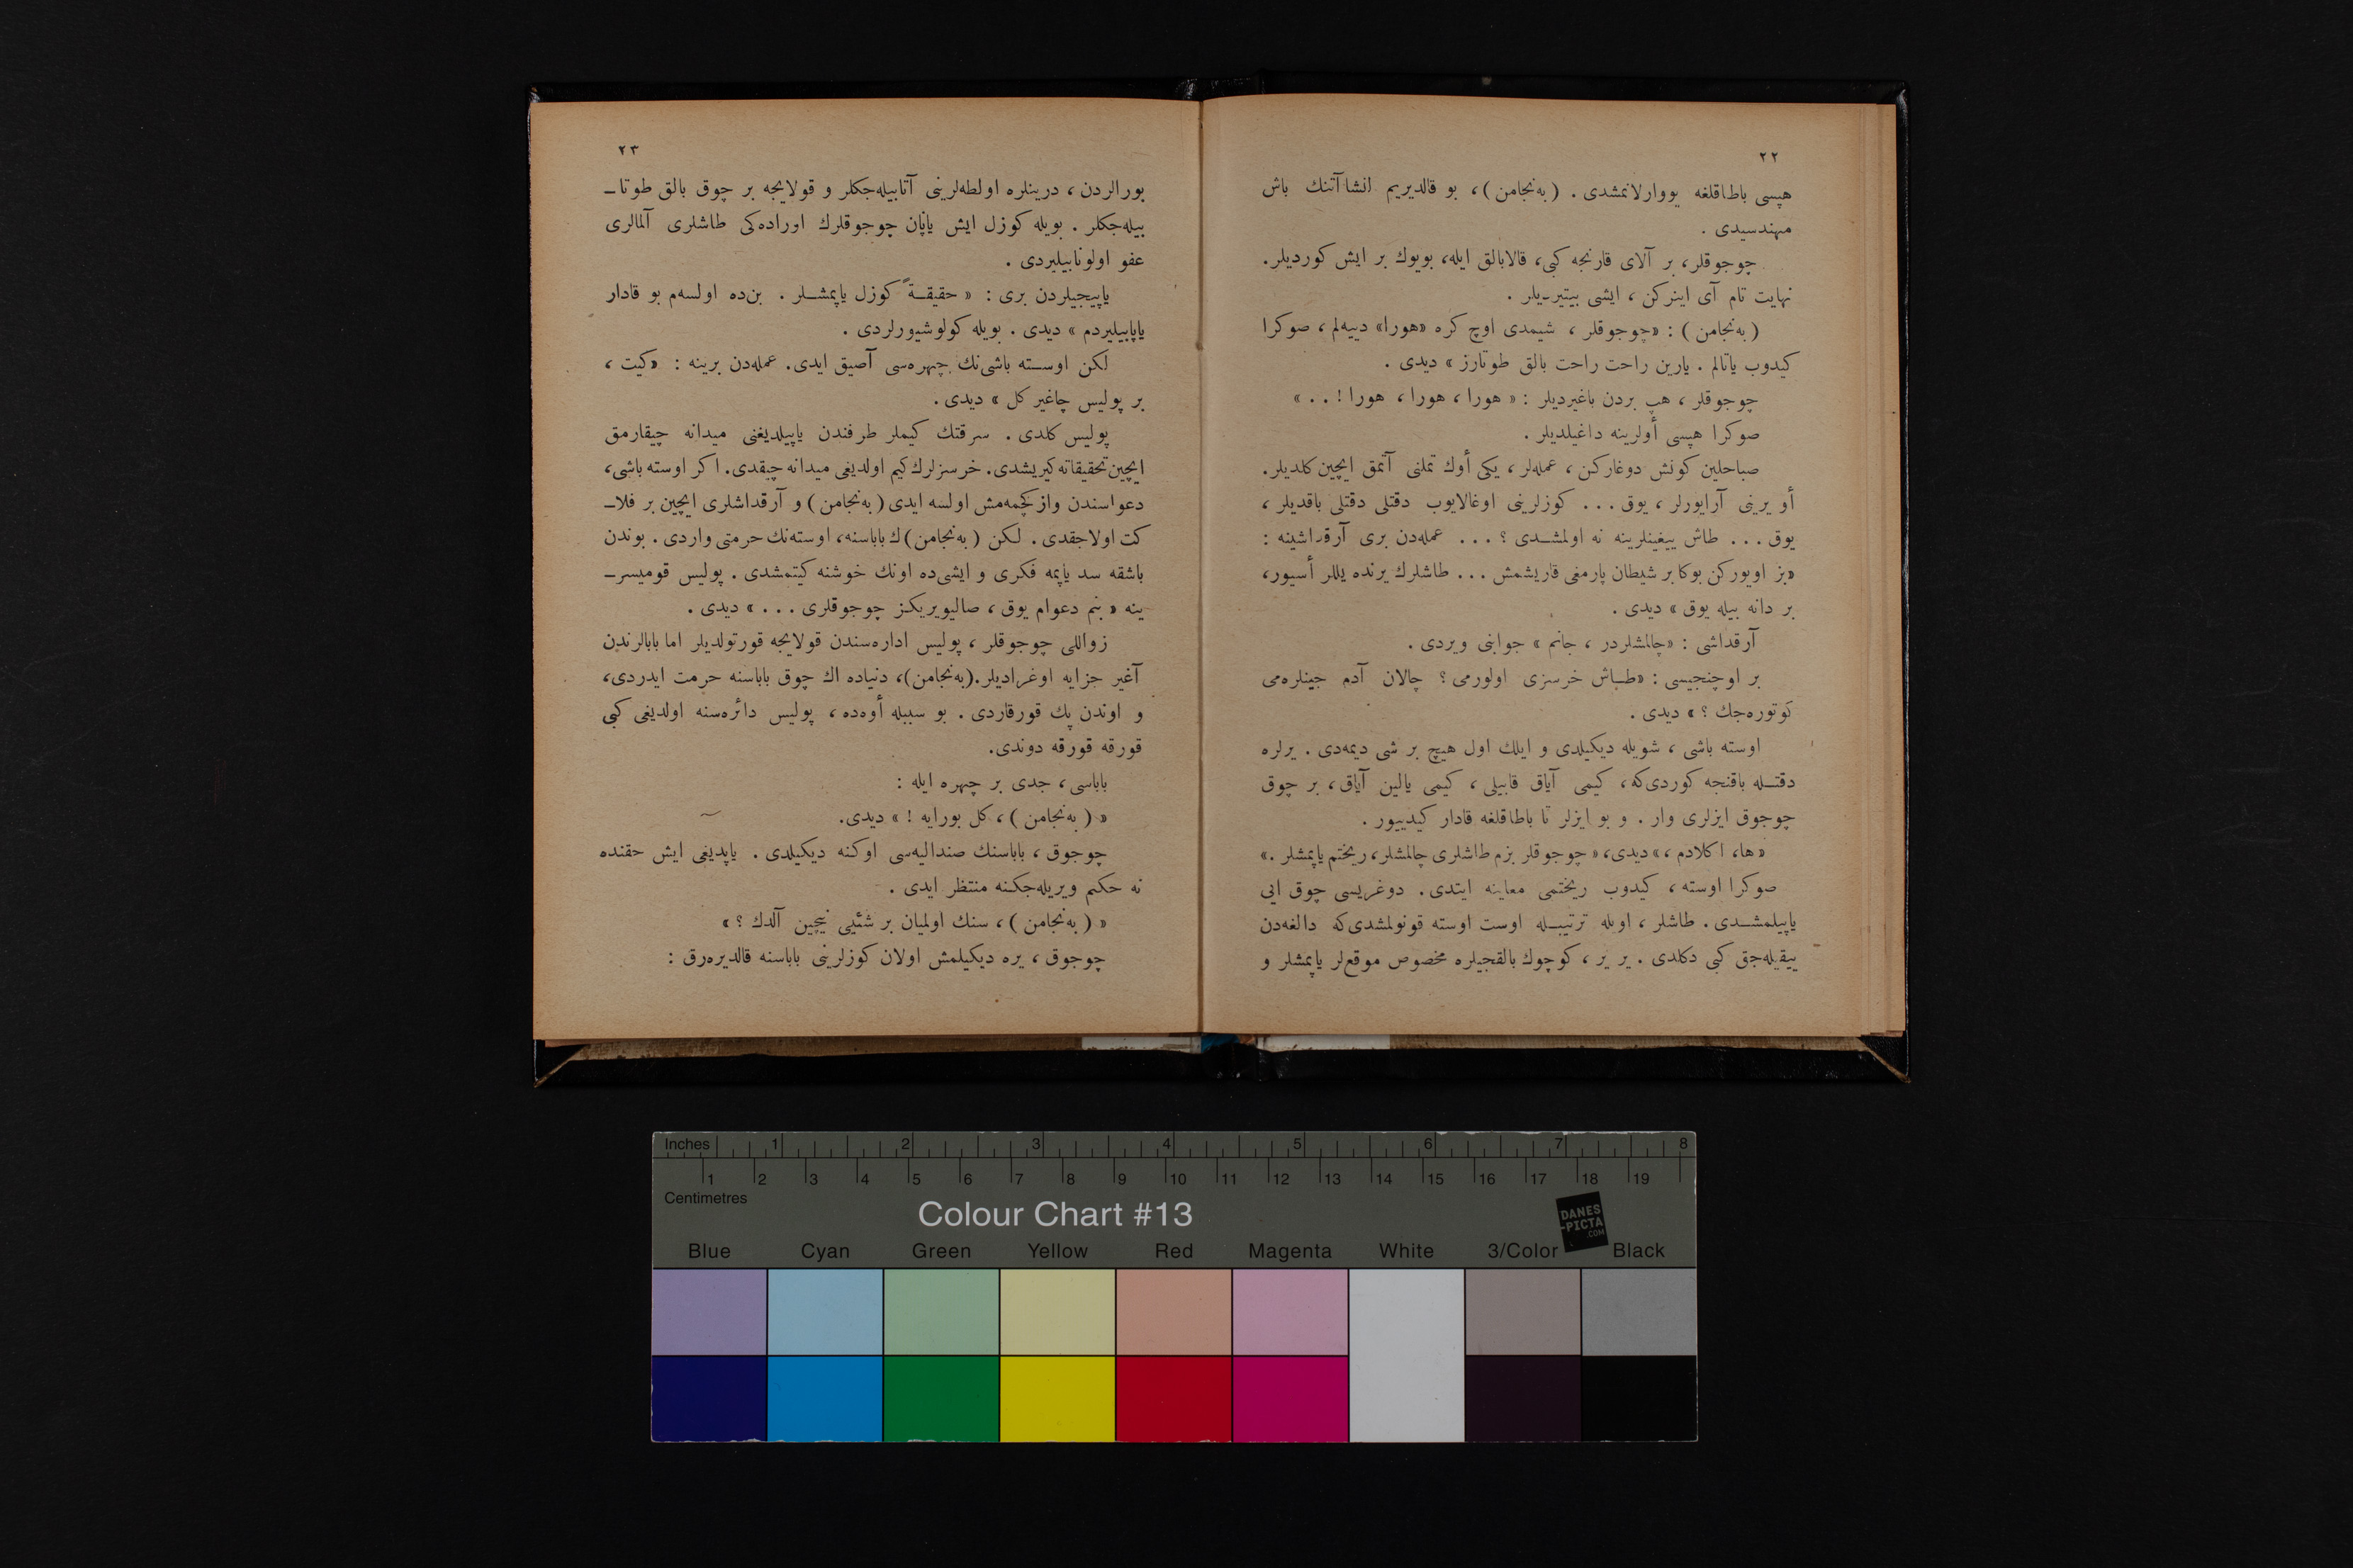 ٢٢
هپسی باطاقلغه یووارلانمشدی . (به‌نجامن) ، بو قالدیریم انشاآتنك باش
مهندسیدی .
چوجوقلر، بر آلای قارنجه كبی، قالابالق ایله، بویوك بر ایش كوردیلر.
نهایت تام آی اینركن ، ایشی بیتیردیلر .
(به‌نجامن) : «چوجوقلر ، شیمدی اوچ كره «هورا» دییه‌لم ، صوكرا
كیدوب یاتالم . یارین راحت راحت بالق طوتارز » دیدی .
چوجوقلر ، هپ بردن باغیردیلر : « هورا ، هورا ، هورا ! . . »
صوكرا هپسی أولرینه داغیلدیلر .
صباحلین كونش دوغاركن ، عمله‌لر ، یكی أوك تملنی آتمق ایچین كلدیلر.
أو یرینی آرایورلر ، یوق . . . كوزلرینی اوغالایوب دقتلی دقتلی باقدیلر ،
یوق . . . طاش ییغینلرینه نه اولمشدی ؟ . . . عمله‌دن بری آرقداشینه :
«بز اویوركن بوكا بر شیطان پارمغی قاریشمش . . . طاشلرك یرنده یللر أسیور،
بر دانه بیله یوق » دیدی .
آرقداشی : «چالمشلردر ، جانم » جوابنی ویردی .
بر اوچنجیسی : «طاش خرسزی اولورمی ؟ چالان آدم جینلره‌می
كوتوره‌جك ؟ » دیدی .
اوسته باشی ، شویله دیكیلدی و ایلك اول هیچ بر شی دیمه‌دی . یرلره
دقتله باقنجه كوردی‌كه ، كیمی آیاق قابیلی ، كیمی یالین آیاق ، بر چوق
چوجوق ایزلری وار . و بو ایزلر تا باطاقلغه قادار كیدییور .
«ها، اكلادم ،» دیدی، « چوجوقلر بزم طاشلری چالمشلر، ریختم یاپمشلر .»
صوكرا اوسته ، كیدوب ریختمی معاینه ایتدی . دوغریسی چوق ایی
یاپیلمشدی . طاشلر ، اویله ترتیبله اوست اوسته قونولمشدی‌كه دالغه‌دن
ییقیله‌جق كبی دكلدی . یر یر ، كوچوك بالقجیلره مخصوص موقع‌لر یاپمشلر و
٢٣
بورالردن ، درینلره اولطه‌لرینی آتابیله‌جكلر و قولایجه بر چوق بالق طوتا-
بیله‌جكلر . بویله كوزل ایش یاپان چوجوقلرك اوراده‌كی طاشلری آلمالری
عفو اولونابیلیردی .
یاپیجیلردن بری : « حقیقةً كوزل یاپمشلر . بن‌ده اولسه‌م بو قادار
یاپابیلیردم » دیدی . بویله كولوشیورلردی .
لكن اوسته باشی‌نك چهره‌سی آصیق ایدی . عمله‌دن برینه : «كیت ،
بر پولیس چاغیر كل » دیدی .
پولیس كلدی . سرقتك كیملر طرفندن یاپیلدیغنی میدانه چیقارمق
ایچین تحقیقاته كیریشدی . خرسزلرك كیم اولدیغی میدانه چیقدی . اكر اوسته باشی،
دعواسندن واز كچمه‌مش اولسه ایدی (به‌نجامن) و آرقداشلری ایچین بر فلا-
كت اولاجقدی . لكن (به‌نجامن)ك باباسنه ، اوسته‌نك حرمتی واردی . بوندن
باشقه سد یاپمه فكری و ایشی‌ده اونك خوشنه كیتمشدی . پولیس قومیسر-
ینه « بنم دعوام یوق ، صالیویریكز چوجوقلری . . . » دیدی .
زواللی چوجوقلر ، پولیس اداره‌سندن قولایجه قورتولدیلر اما بابالرندن
آغیر جزایه اوغرادیلر. (به‌نجامن)، دنیاده اك چوق باباسنه حرمت ایدردی،
و اوندن پك قورقاردی . بو سببله أوه‌ده ، پولیس دائره‌سنه اولدیغی كبی
قورقه قورقه دوندی .
باباسی ، جدی بر چهره ایله :
« (به‌نجامن) ، كل بورایه ! » دیدی.
چوجوق ، باباسنك صندالیه‌سی اوكنه دیكیلدی . یاپدیغی ایش حقنده
نه حكم ویریله‌جكنه منتظر ایدی .
« (به‌نجامن) ، سنك اولمیان بر شئیی نیچین آلدك ؟ »
چوجوق ، یره دیكیلمش اولان كوزلرینی باباسنه قالدیره‌رق :
Inches 1 2 3 4 5 6 7 8
1 2 3 4 5 6 7 8 9 10 11 12 13 14 15 16 17 18 19
Centimetres
Colour Chart #13
DANES
-PICTA
.COM
Blue Cyan Green Yellow Red Magenta White 3/Color Black